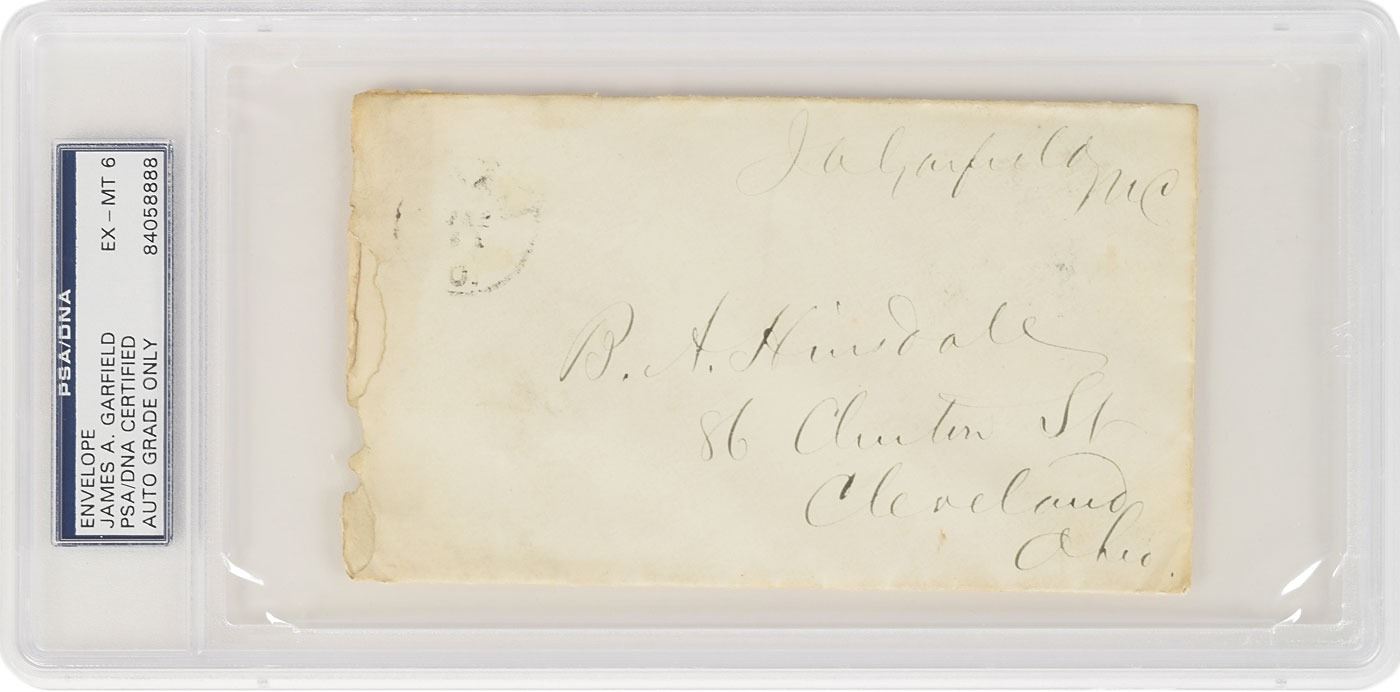 PSA/DNA
ENVELOPE
JAMES A. GARFIELD EX-MT 6
PSA/DNA CERTIFIED
AUTO GRADE ONLY 84058888
J A Garfield MC
B. A. Hinsdale
86 Clinton St
Cleveland
Ohio.